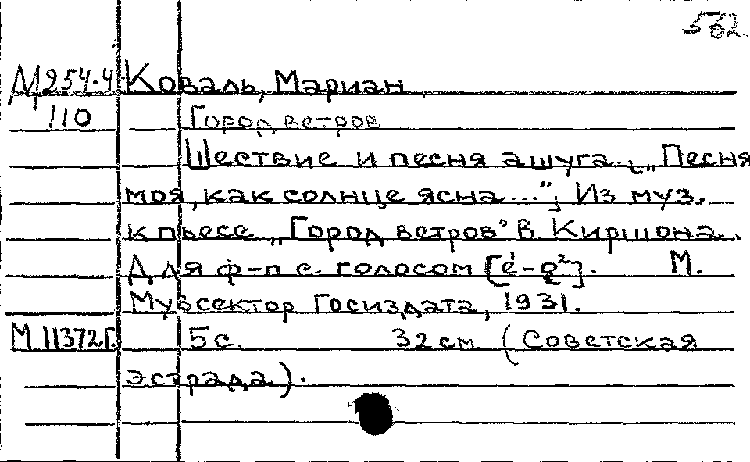 562
М 254.4 Коваль, Мариан
110 Город ветров
Шествие и песня ашуга: „Песня
моя, как солнце ясна..."; Из муз.
к пьесе „Город ветров" В. Киршона.
Для ф-п с голосом [e¹-g²]. М.
Музсектор Госиздата, 1931.
М 11372Г. 5 с. 32 см (Советская
эстрада).